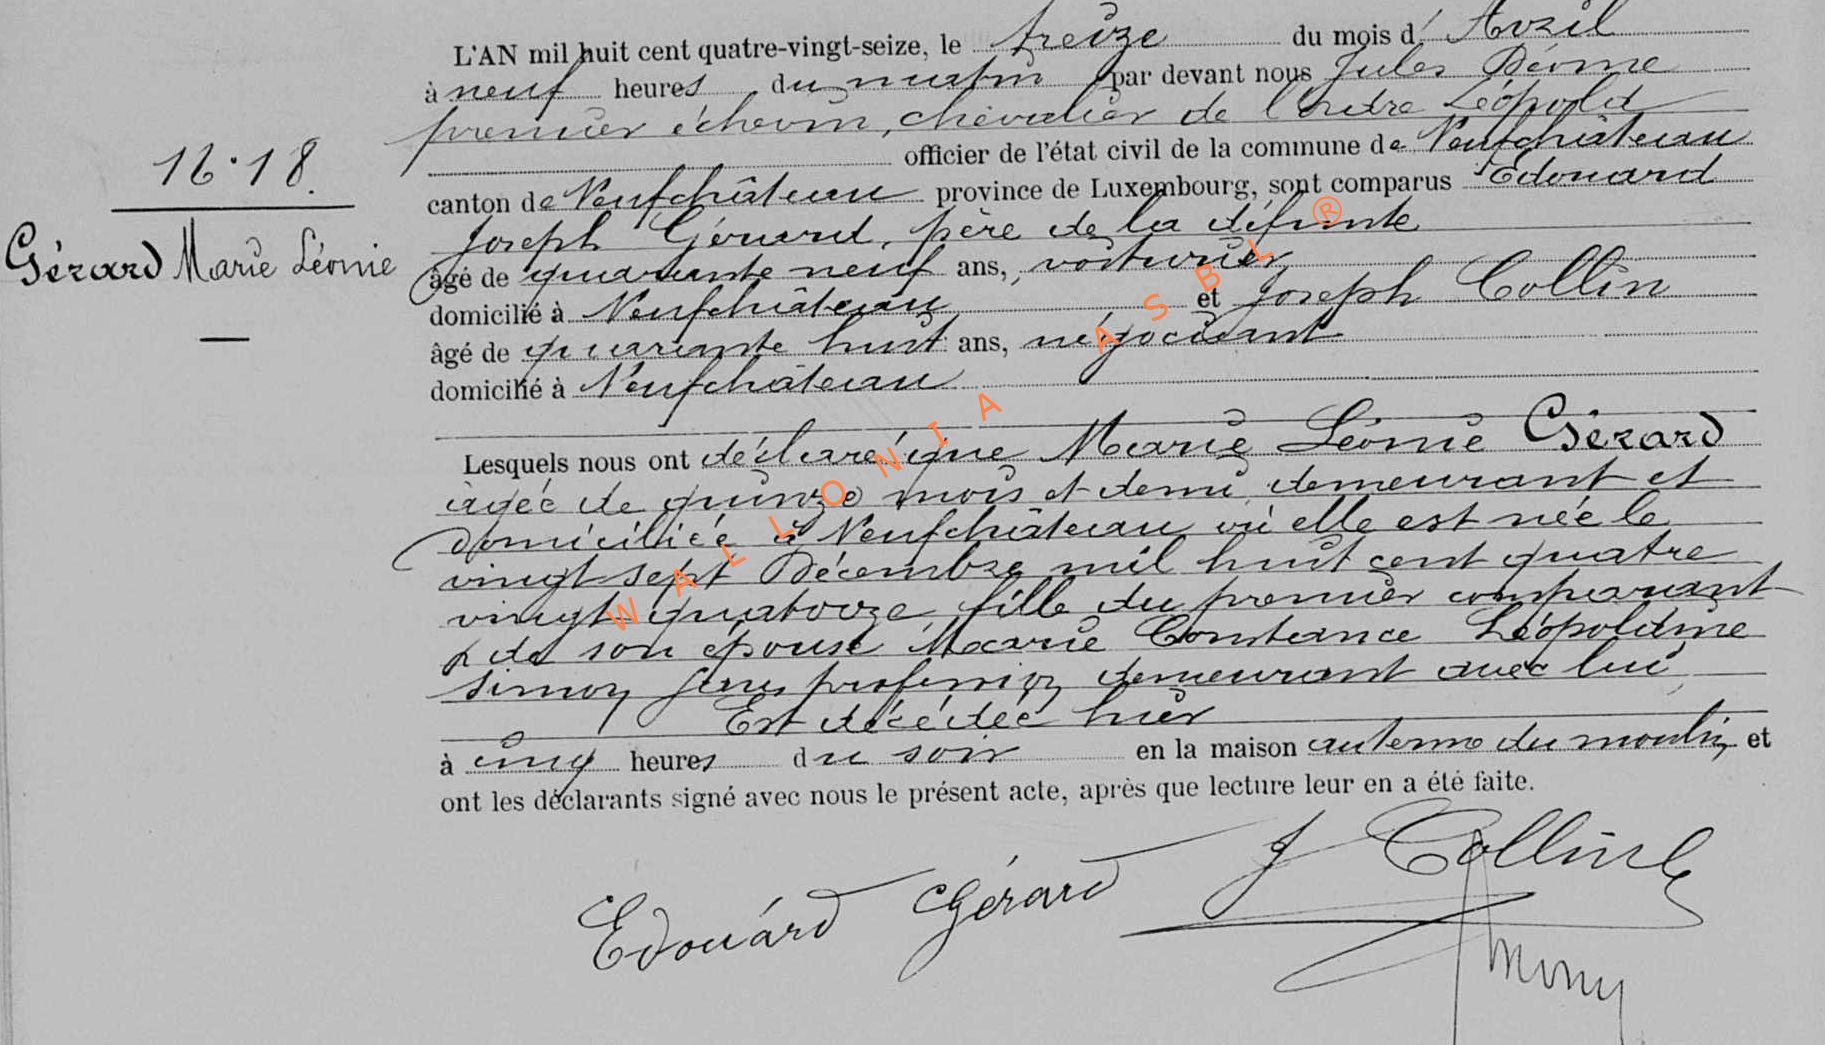 L'AN mil huit cent quatre-vingt-seize, le treize du mois d' Avril
à neuf heures du matin par devant nous Jules
premier échevin, chevalier de l'ordre Léopold
officier de l'état civil de la commune de Neufchâteau
canton de Neufchâteau province de Luxembourg, sont comparus Edouard
Joseph Gérard, père de la défunte
âgé de quarante neuf ans, voiturier,
domicilié à Neufchâteau et Joseph Collin
âgé de quarante huit ans, négociant
domicilié à Neufchâteau
16.18.
Gérard Marie Léonie
Lesquels nous ont déclaré que Marie Léonie Gérard
agée de quinze mois et demi, demeurant et
domiciliée à Neufchâteau où elle est née le
vingt sept Décembre mil huit cent quatre
vingt quatorze, fille du premier comparant
& de son épouse Marie Constance Léopoldine
Simon sans profession demeurant avec lui
Est décédée hier
à cinq heures du soir en la maison du moulin, et
ont les déclarants signé avec nous le présent acte, après que lecture leur en a été faite.
Edouárd Gérard J Collin
WALLONIA ASBL ®